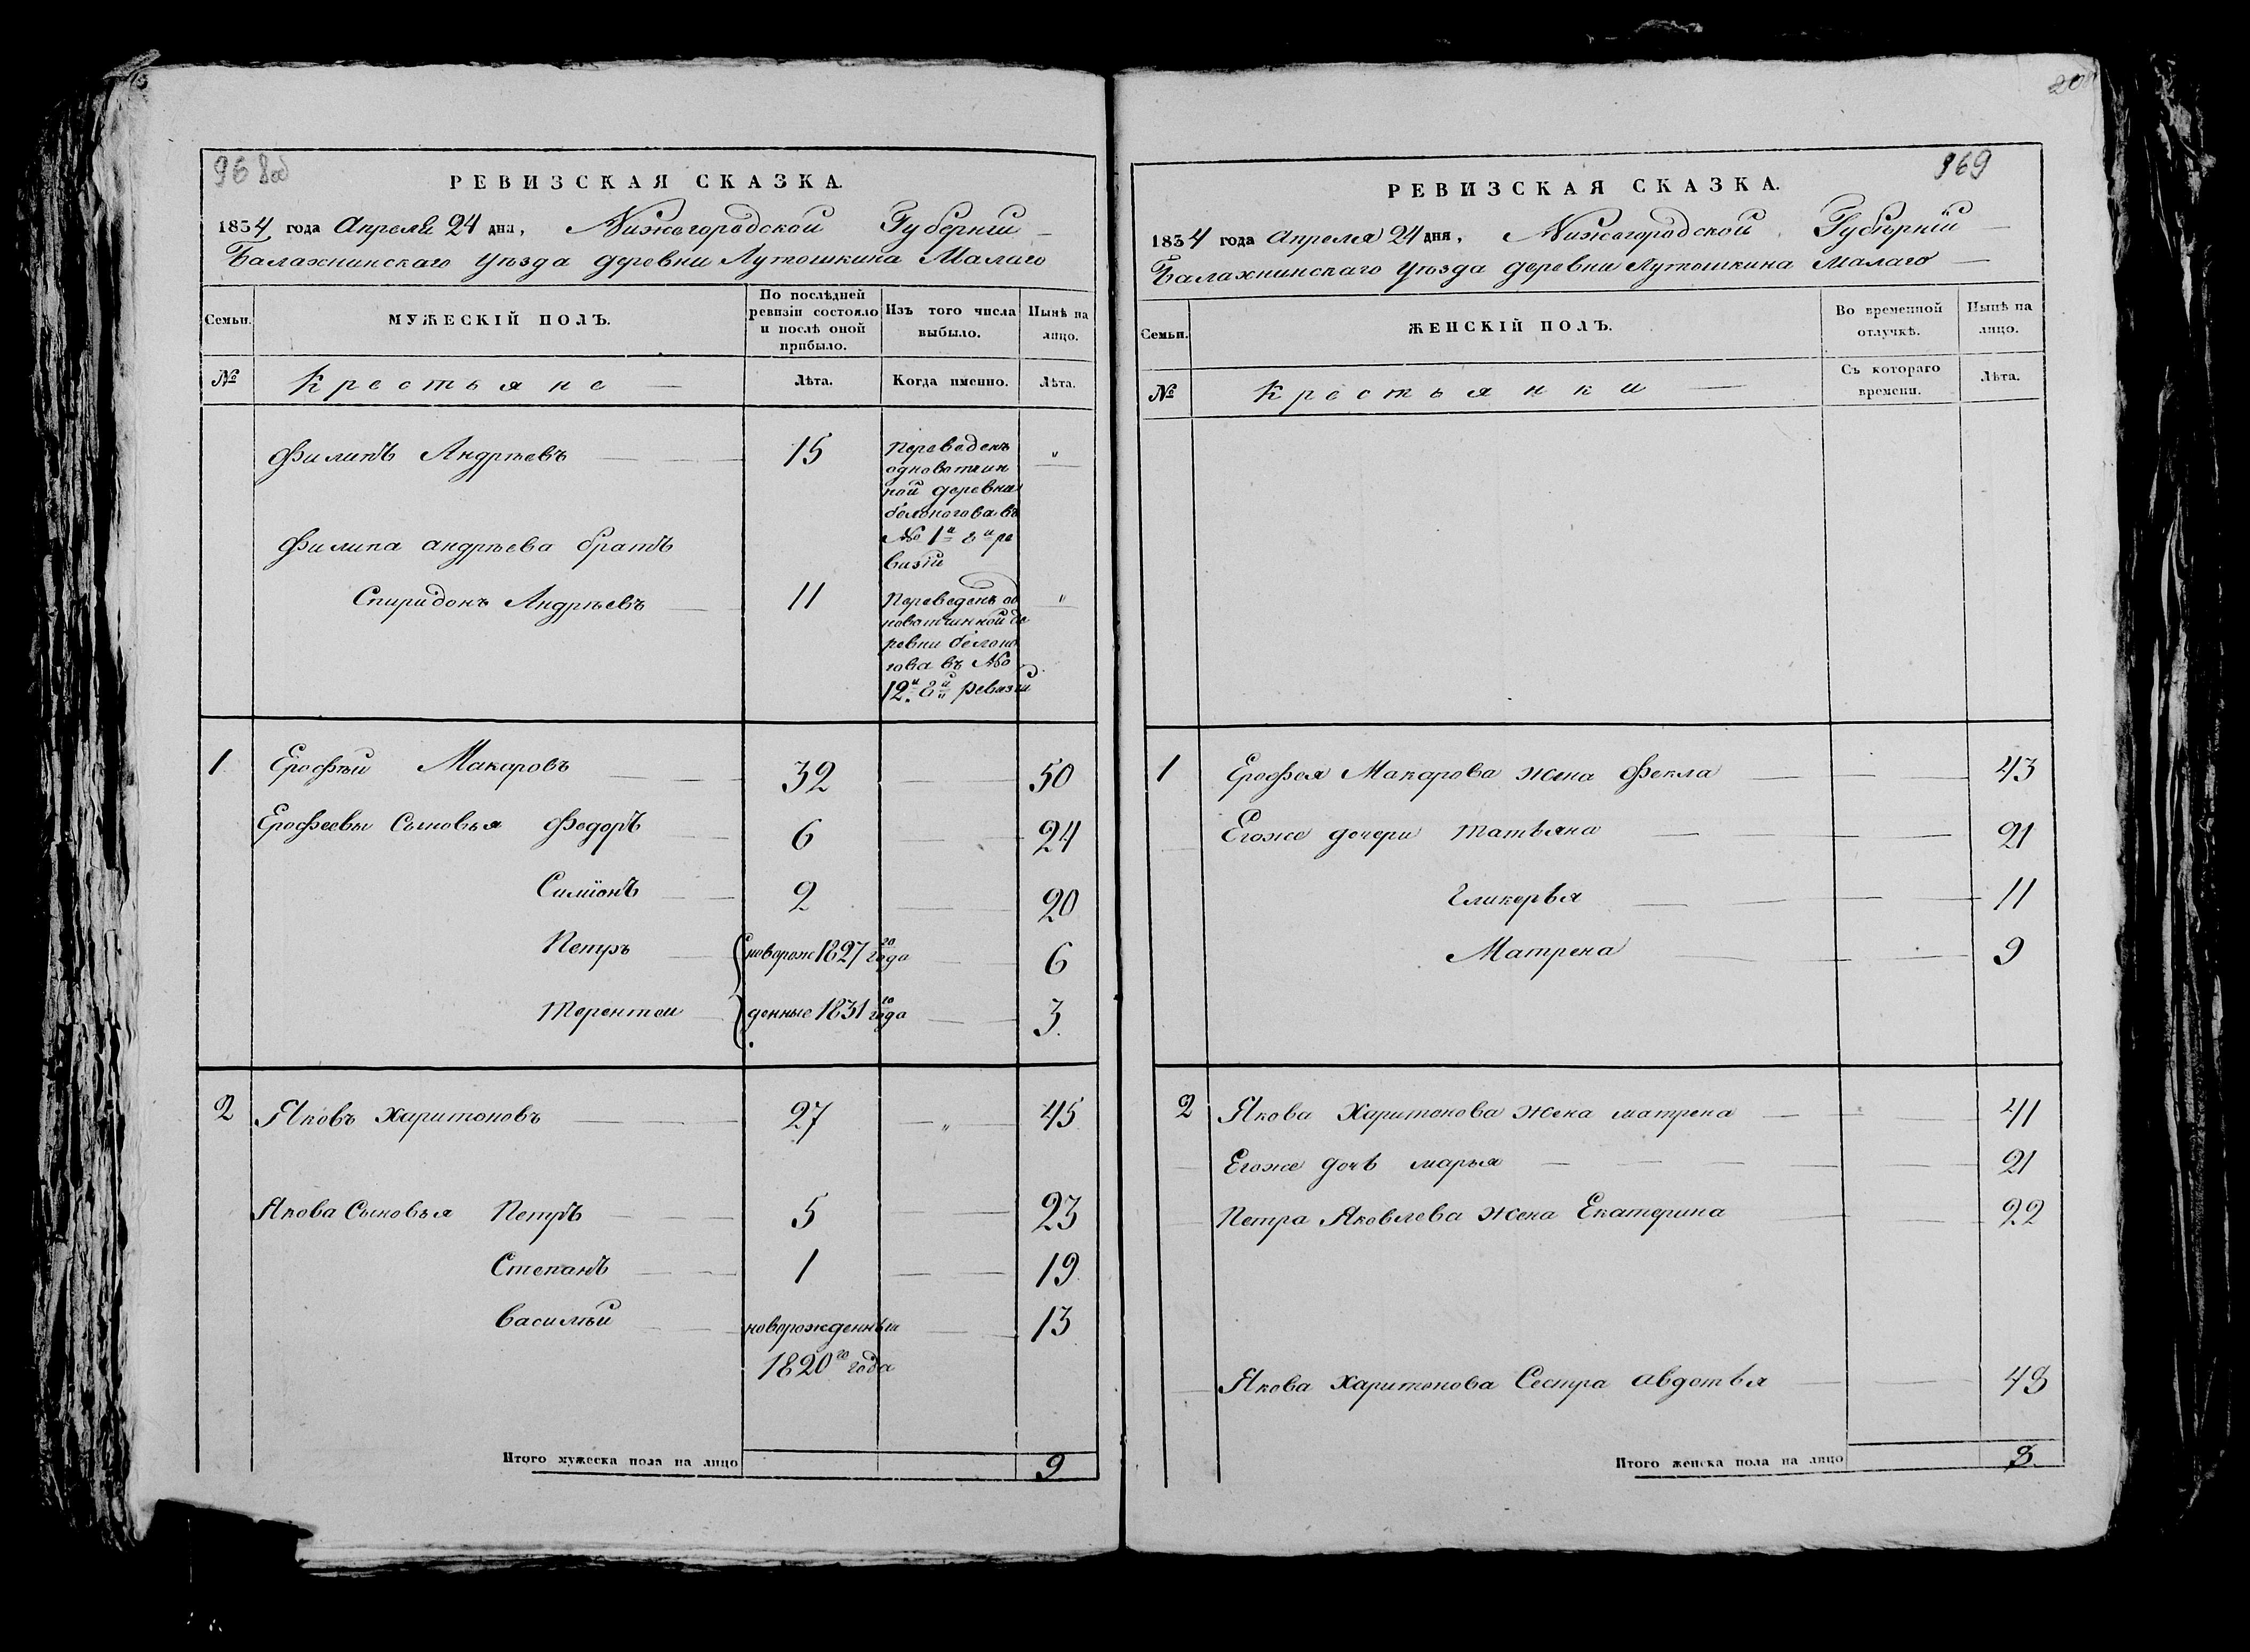 968об
РЕВИЗСКАЯ СКАЗКА.
1834 года Апреля 24 дня, Нижегородской Губернии
Балахнинскаго уѣзда деревни Лутошкина Малаго
Семьи. МУЖЕСКІЙ ПОЛЪ. По послѣдней ревизіи состояло и послѣ оной прибыло. Изъ того числа выбыло. Нынѣ на лицо.
№ Крестьяне Лѣта. Когда именно. Лѣта.
Филипъ Андрѣевъ 15 Переведенъ "
одновотчин
ной деревни
белоногова въ
№ 1й 8й ре
визіи
Филипа андрѣева братъ
Спиридонъ Андрѣевъ 11 Переведенъ од "
новотчинной де
ревни белоно
гова въ №
12й 8й ревизіи
1 Ерофѣй Макаровъ 32 50
Ерофеевы Сыновья Федоръ 6 24
Симіонъ 2 20
Петръ новорож 1827го года 6
Терентей денные 1831го года 3.
2 Яковъ Харитоновъ 27 " 45
Якова Сыновья Петръ 5 23
Степанъ 1 19
Василѣй новорожденный 13
1820го года
Итого мужеска пола на лицо 9
969
РЕВИЗСКАЯ СКАЗКА.
1834 года Апреля 24 дня, Нижегородской Губѣрніи
Балахнинскаго уѣзда деревни Лутошкина Малаго
Семьи. ЖЕНСКІЙ ПОЛЪ. Во временной отлучкѣ. Нынѣ на лицо.
№ Крестьянки Съ котораго времени. Лѣта.
1 Ерофея Макарова жена Фекла 43
Егоже дочери Татьяна 21
Гликерья 11
Матрена 9
2 Якова Харитонова жена матрена 41
Егоже дочь марья 21
Петра Яковлева жена Екатерина 22
Якова Харитонова Сестра авдотья 48
Итого женска пола на лицо 8.